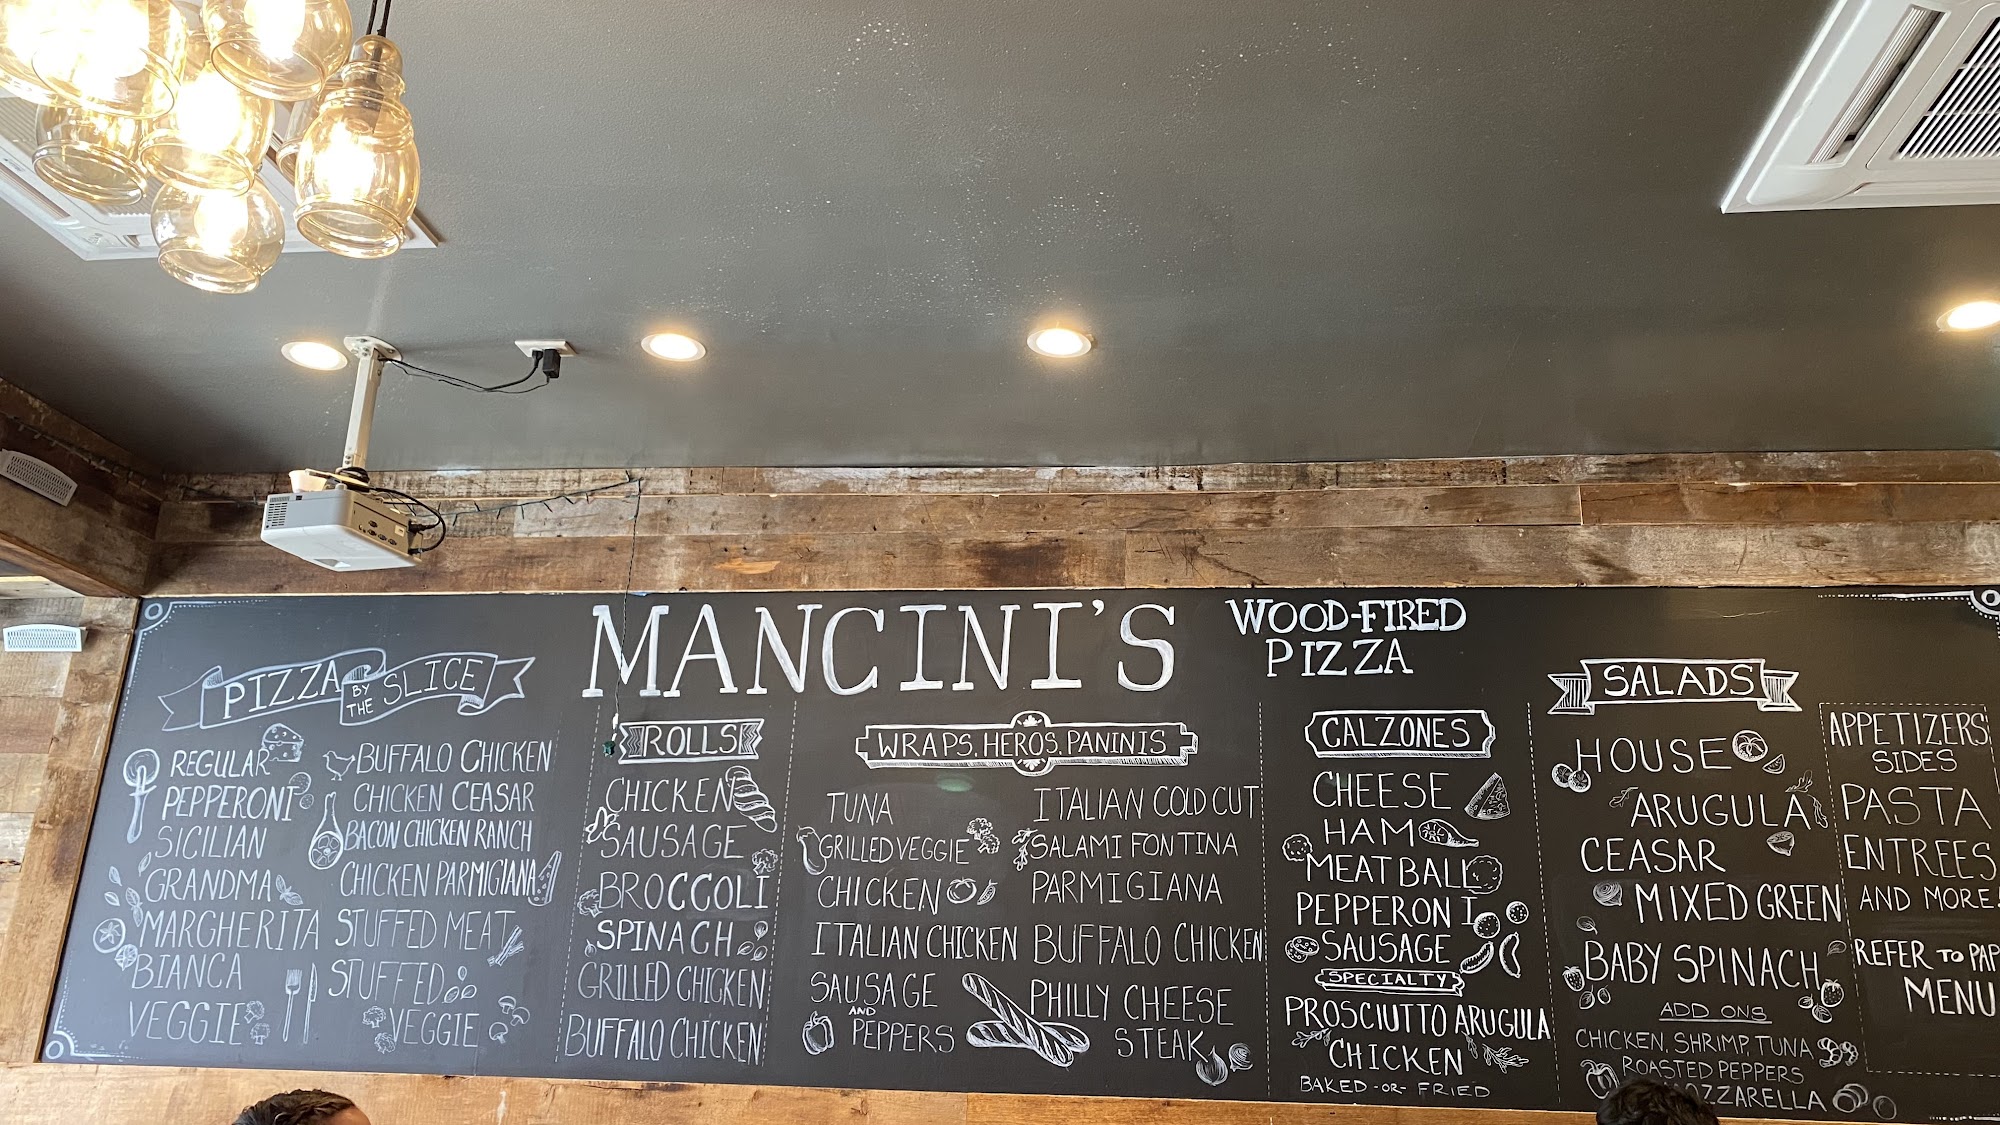 MANCINI'S
WOOD-FIRED
PIZZA
PIZZA BY THE SLICE
REGULAR
PEPPERONI
SICILIAN
GRANDMA
MARGHERITA
BIANCA
VEGGIE
BUFFALO CHICKEN
CHICKEN CEASAR
BACON CHICKEN RANCH
CHICKEN PARMIGIANA
STUFFED MEAT
STUFFED
VEGGIE
ROLLS
CHICKEN
SAUSAGE
BROCCOLI
SPINACH
GRILLED CHICKEN
BUFFALO CHICKEN
WRAPS, HEROS, PANINIS
TUNA
GRILLED VEGGIE
CHICKEN
ITALIAN CHICKEN
SAUSAGE
AND
PEPPERS
ITALIAN COLD CUT
SALAMI FONTINA
PARMIGIANA
BUFFALO CHICKEN
PHILLY CHEESE
STEAK
CALZONES
CHEESE
HAM
MEATBALL
PEPPERONI
SAUSAGE
SPECIALTY
PROSCIUTTO ARUGULA
CHICKEN
BAKED -OR- FRIED
SALADS
HOUSE
ARUGULA
CEASAR
MIXED GREEN
BABY SPINACH
ADD ONS
CHICKEN, SHRIMP, TUNA
ROASTED PEPPERS
APPETIZERS
SIDES
PASTA
ENTREES
AND MORE!
REFER TO
MENU